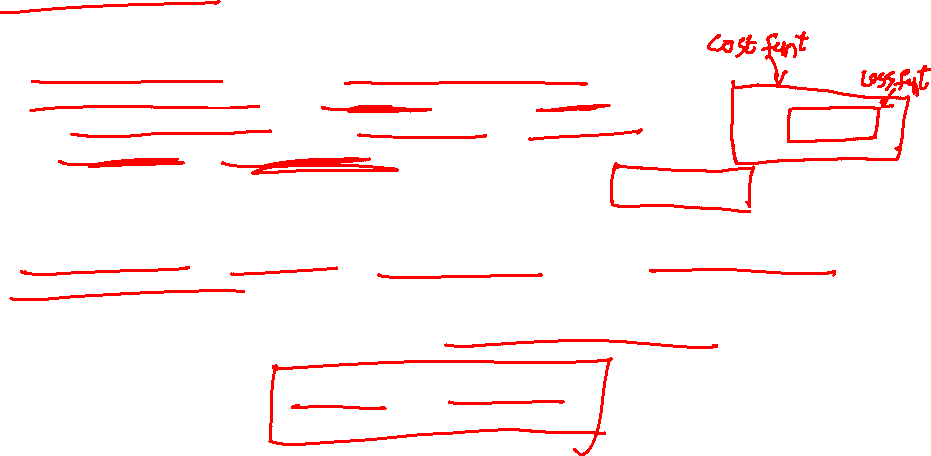 cost funt
Loss fut